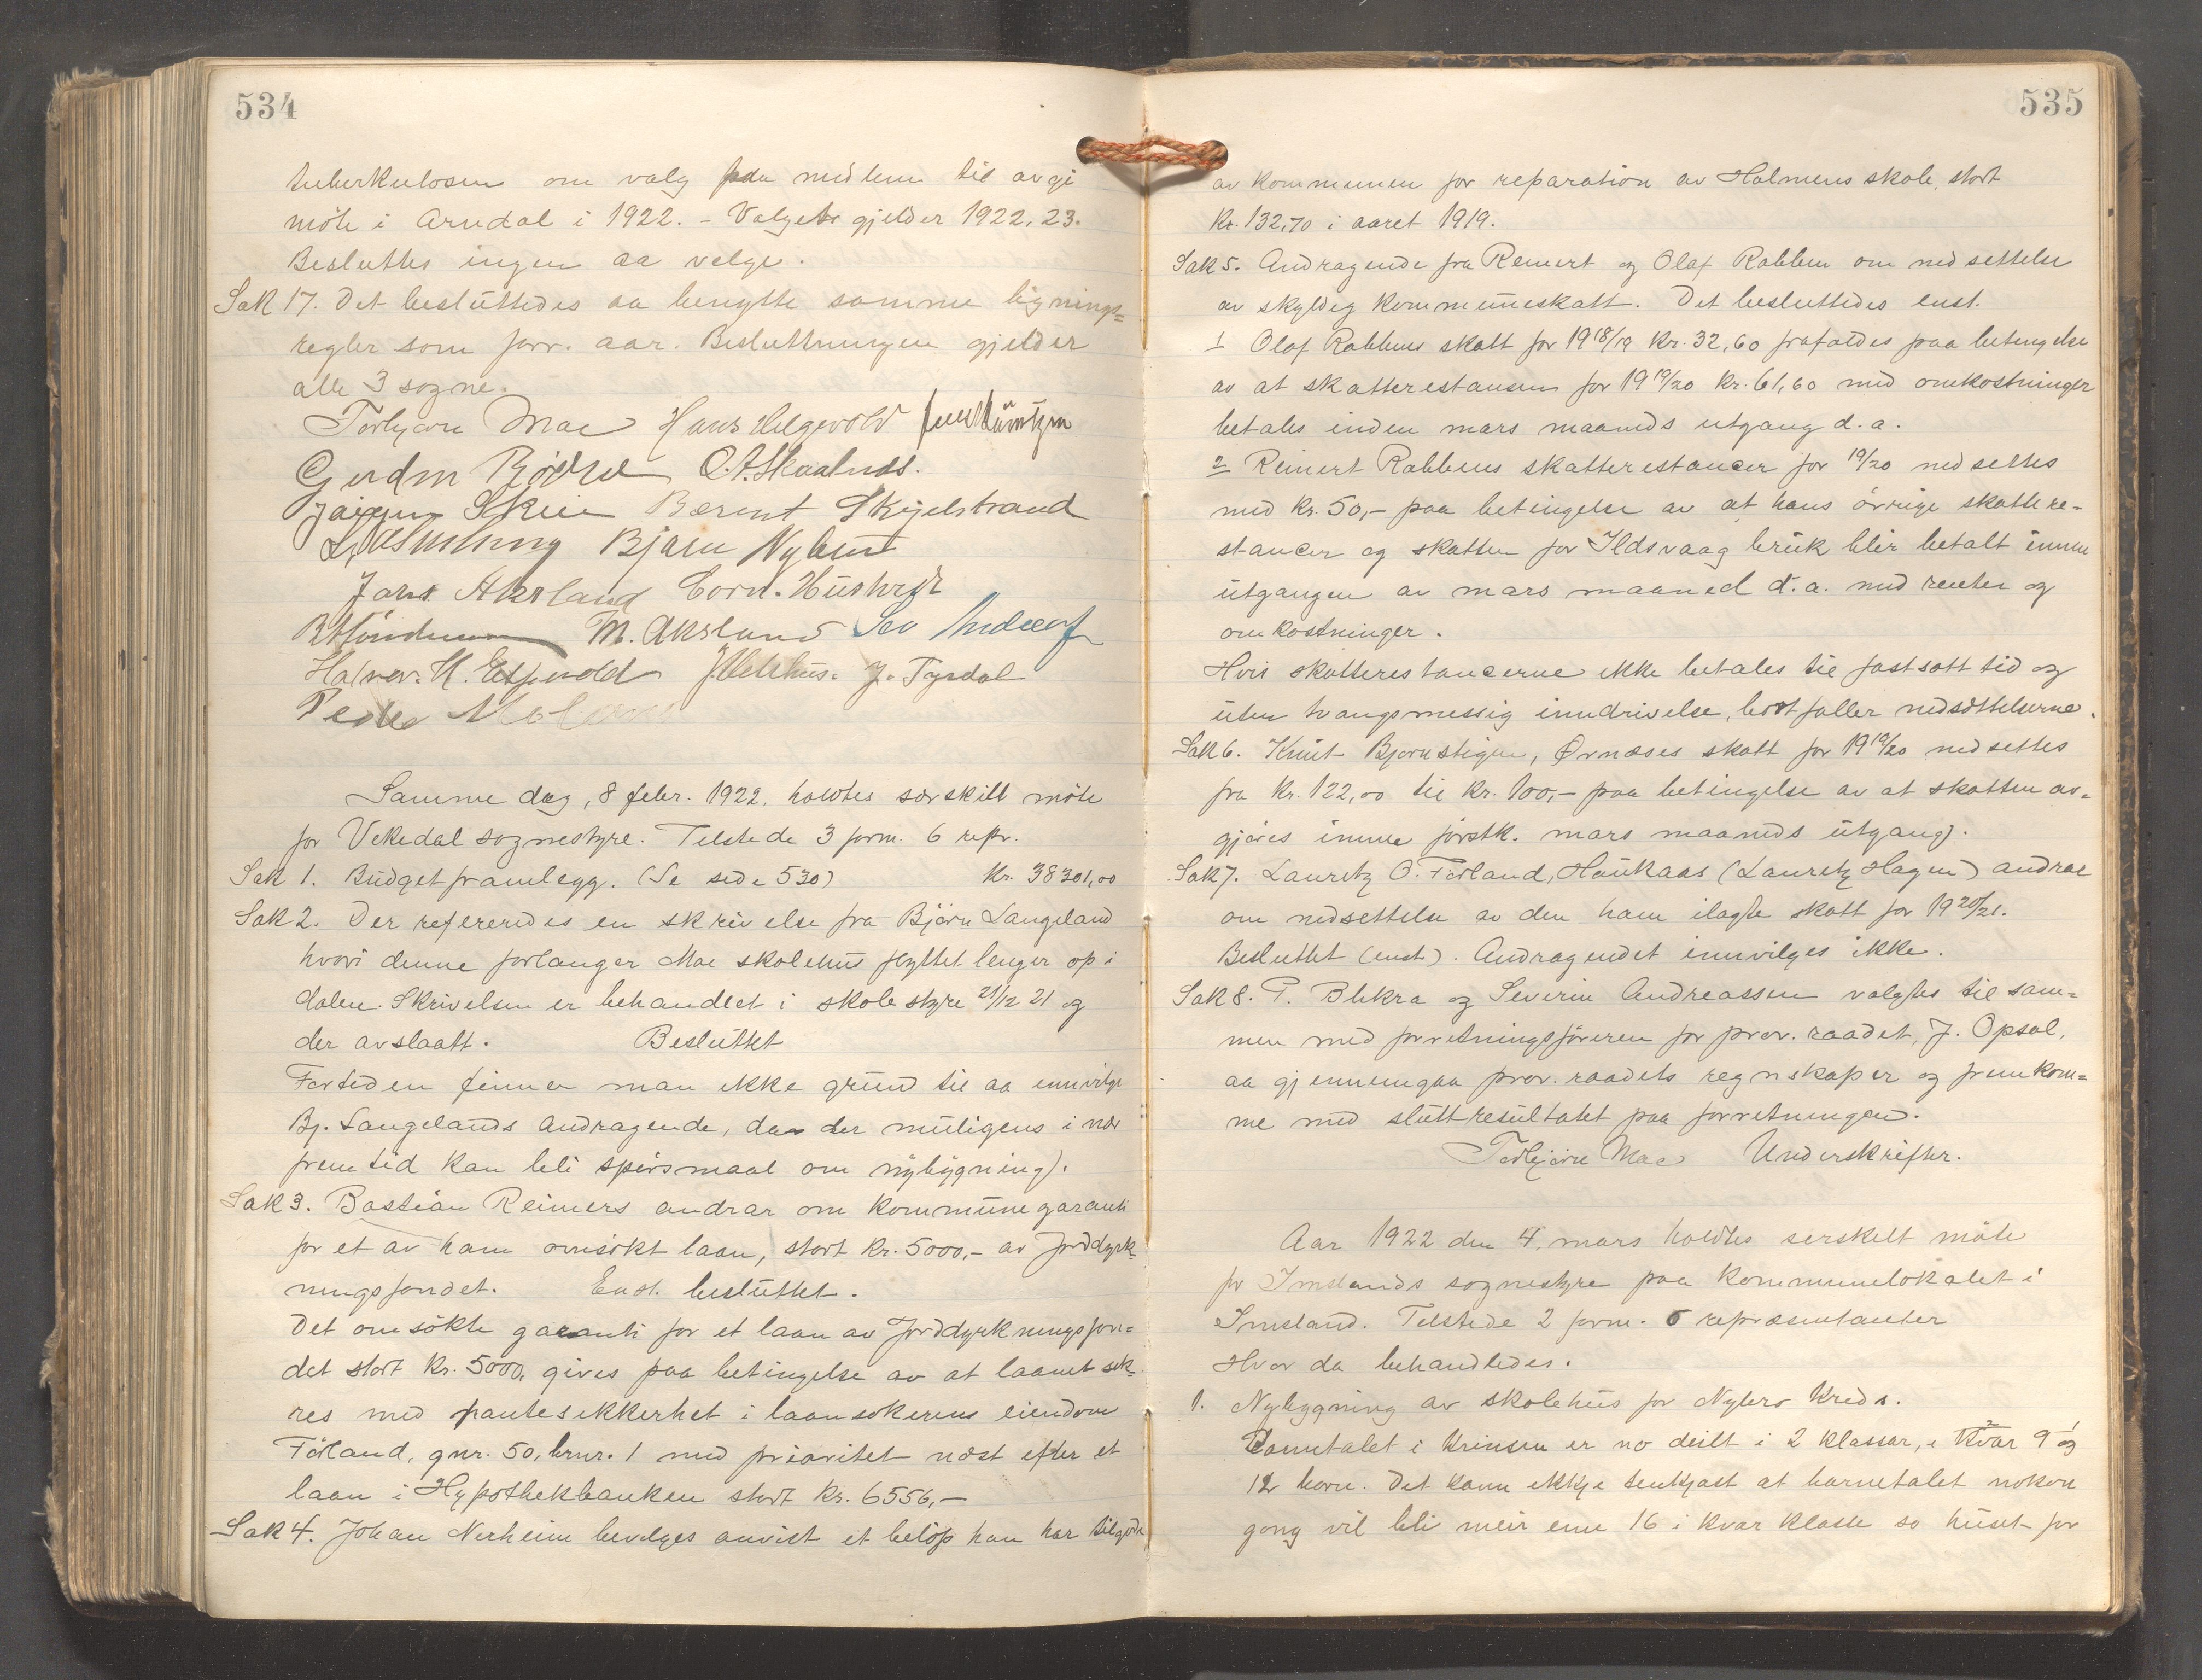 534
tuberkulosen om valg paa medlem til avgi
möte i Arndal i 1922. - Valget gjelder 1922, 23.
Besluttes ingen aa velge.
Sak 17. Det besluttedes aa benytte samme lignings=
regler som forr. aar. Beslutningen gjelder
alle 3 sogne.
Torbjørn Mae Hans Helgevold
Gudm Rødne O. A. Skaalnes.
Skeie Berent Skjelstrand
Bjarn Nylund
Aksland Corn.
M. Aksland
Halvor. H. J. Tysdal
Peder
Samme dag, 8 febr. 1922. holdtes særskilt möte
for Vikedal sognestyre. Telstede 3 form. 6 repr.
Sak 1. Budgetframlegg. (Se side 530) Kr. 38301,00
Sak 2. Der refereredes en skrivelse fra Björn Langeland
hvori denne forlanger Mae skolehus flyttet lenger op i
dalen. Skrivelsen er behandlet i skolestyre 21/12 21 og
der avslaatt. Besluttet
Fortiden finner man ikke grund til aa innvilge
Bj. Langelands andragende, da der muligens i nær
fremtid kan bli spörsmaal om nybygning).
Sak 3. Bastian Reimers andrar om kommunegaranti
for et av ham omsökt laan, stort kr. 5000,- av Jorddyrk=
ningsfondet. Enst. besluttet.
Det omsökte garanti for et laan av Jorddyrkningsfon=
det stort Kr. 5000, gives paa betingelse av at laanet sik=
res med pantesikkerhet i laansökerens eiendom
Förland, gnr. 50, brnr. 1 med prioritet næst efter et
laan i Hypothekbanken stort kr. 6556,-
Sak 4. Johan Nerheim bevilges anvist et belöp han har tilgode
535
av kommunen for reparation av Holmens skole, stort
Kr. 132,70 i aaret 1919.
Sak 5. Andragende fra Reinert og Olaf Rabben om nedsettelse
av skyldig kommuneskatt. Det besluttedes enst.
1 Olaf Rabbens skatt for 1918/19 Kr. 32,60 frafaldes paa betingelse
av at skatterestansen for 1919/20 Kr. 61,60 med omkostninger
betales inden mars maaneds utgang d. a.
2 Reinert Rabbens skatterestancer for 19/20 nedsettes
med kr. 50,- paa betingelse av at hans övrige skattere=
stancer og skatten for Ildsvaag bruk blir betalt innen
utgangen av mars maaned d. a. med renter og
omkostninger.
Hvis skatterestancerne ikke betales til fastsatt tid og
uten tvangsmessig inndrivelse, bortfaller nedsettelserne.
Sak 6. Knut Bjørnstigen, Ørnæses skatt for 1919/20 nedsettes
fra kr. 122,00 til kr. 100,- paa betingelse av at skatten av=
gjöres innen förstk. mars maaneds utgang).
Sak 7. Lauretz O. Førland, Haukaas (Lauretz Hagen) andrar
om nedsettelse av den ham ilagte skatt for 1920/21.
Besluttet (enst). Andragendet innvilges ikke.
Sak 8. P. Blikra og Severin Andreassen valgtes til sam=
men med forretningsföreren for prov. raadet, J. Opsal,
aa gjennemgaa prov. raadets regnskaper og fremkom=
me med sluttresultatet paa forretningen.
Torbjørn Mae Underskrifter.
Aar 1922 den 4. mars holdtes serskelt möte
for Imslands sognestyre paa kommunelokalet i
Imsland. Telstede 2 form. 6 repræsentanter
Hvor da behandledes.
1. Nybyggning av skolehus for Nybru Kreds.
Barnetalet i Krinsen er no deilt i 2 klassar, i kvar 9 og
12 born. Det kann ikkje tenkjast at barnetalet nokon
gong vil bli meir enn 16 i kvar klasse so huset for